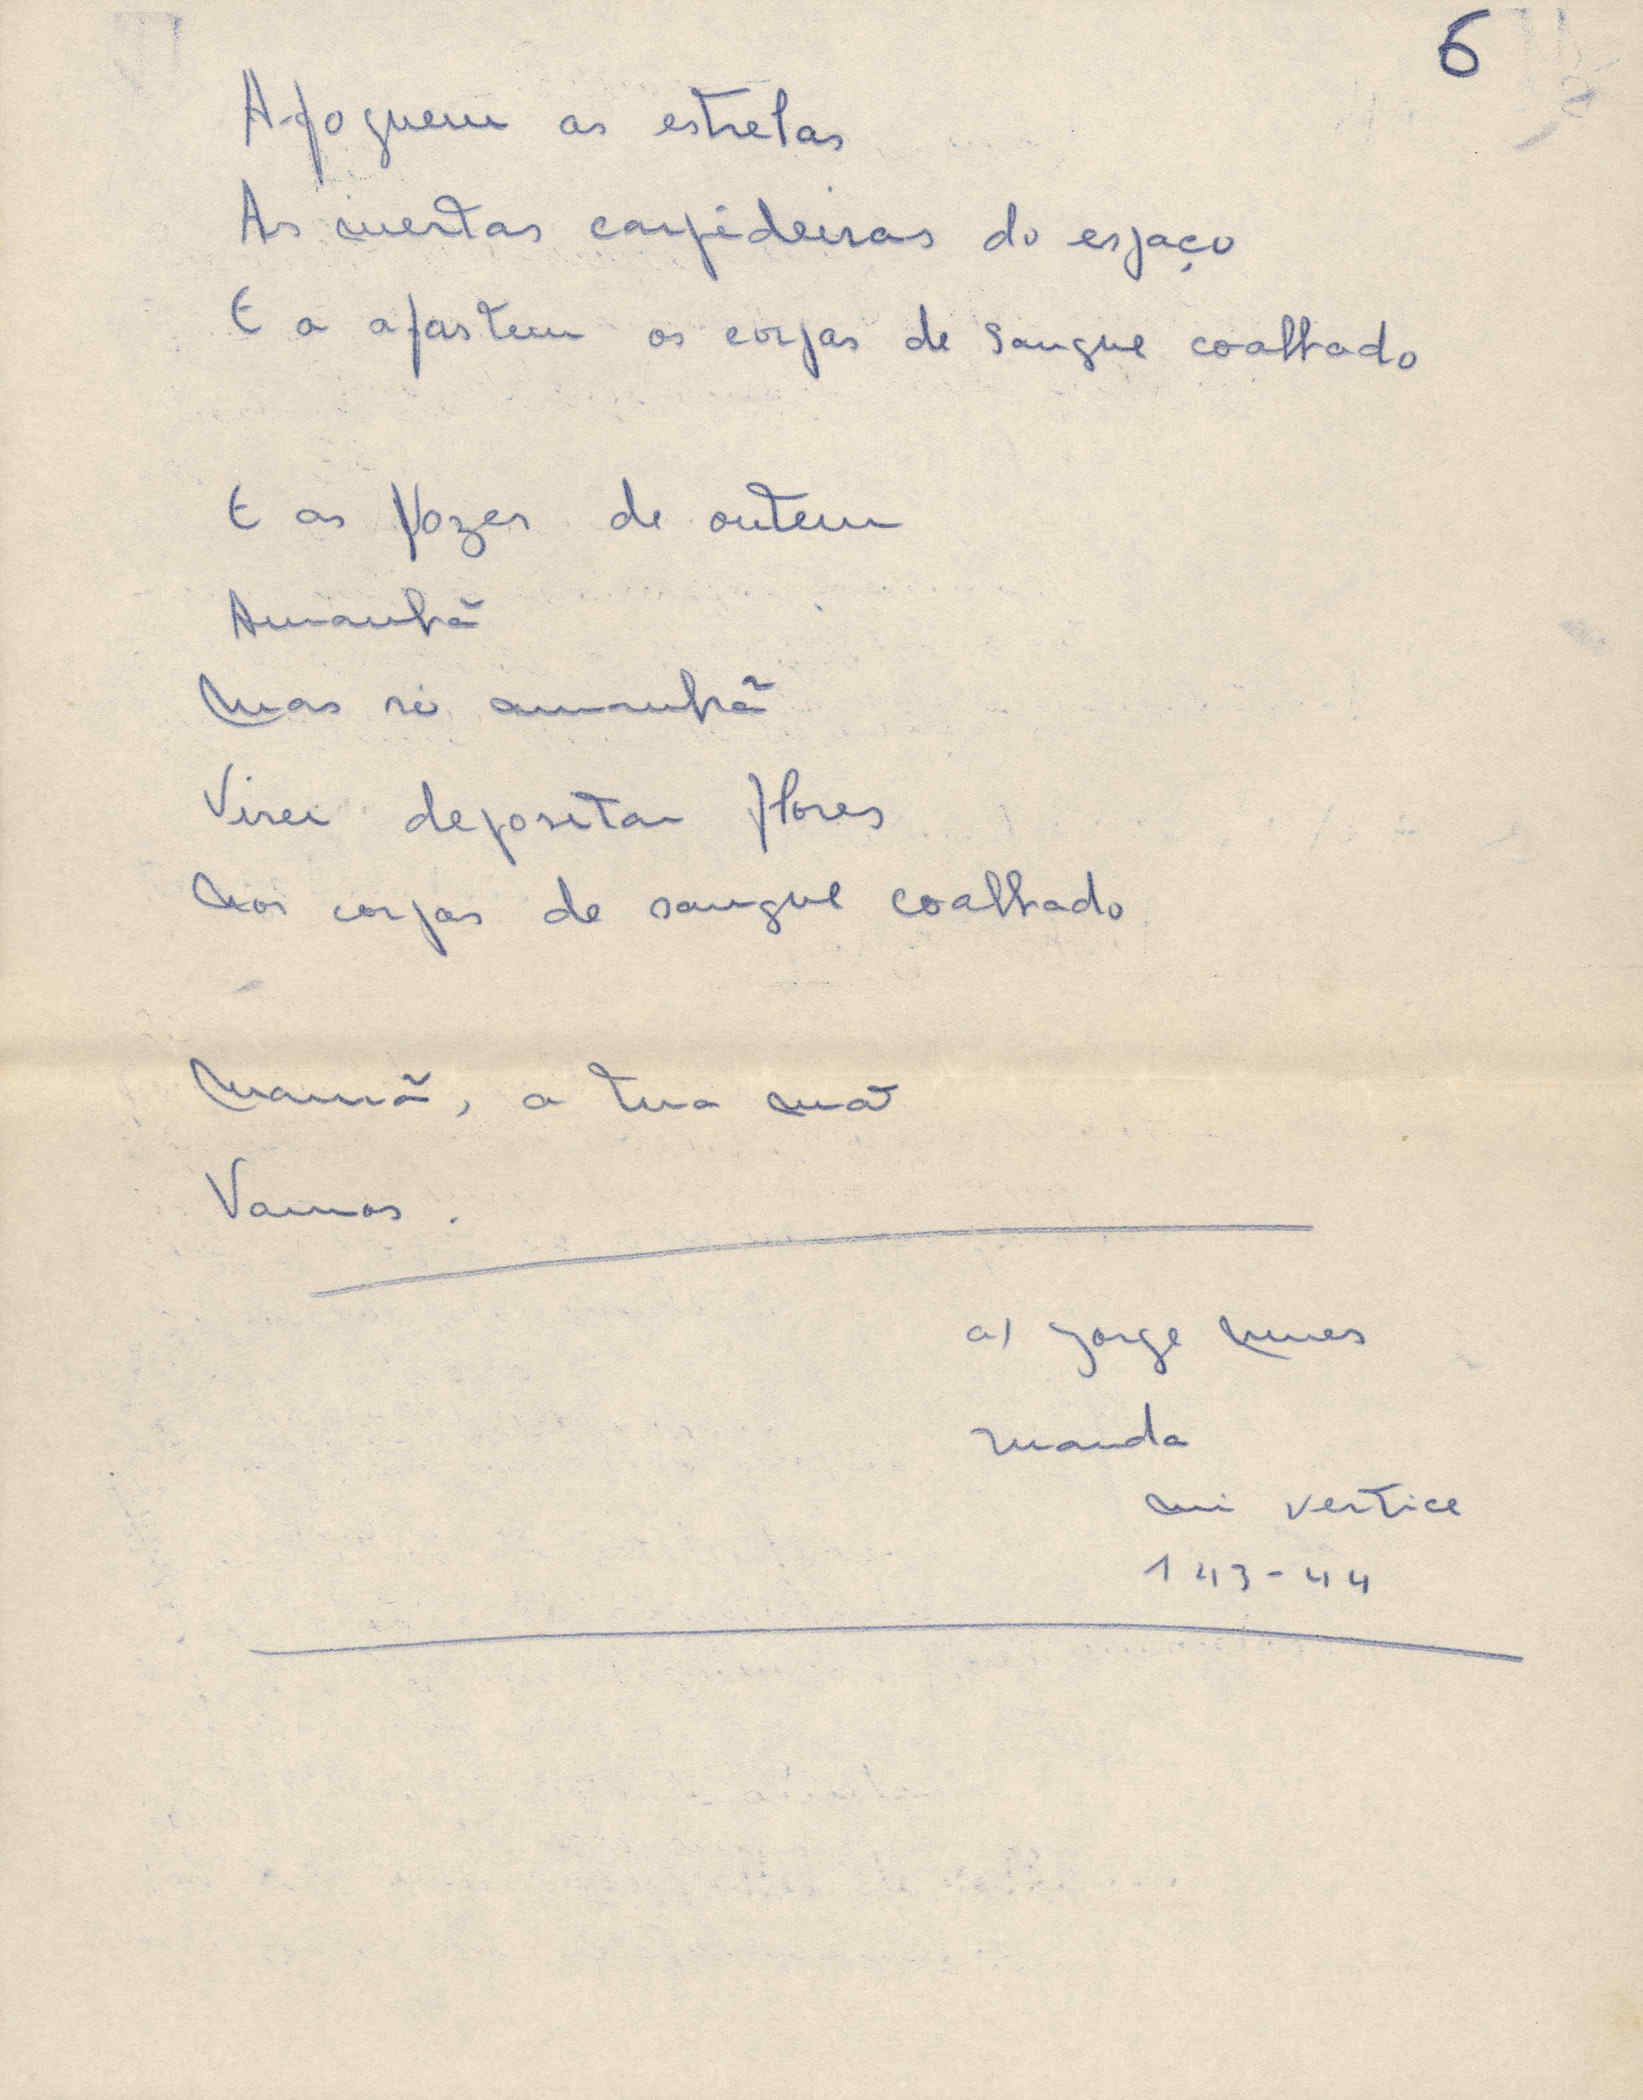 6
Afoguem as estrelas
As inertas carpideiras do espaço
E a afastem os corpos de sangue coalhado
E as Vozes de ontem
Amanhã
Mas só amanhã
Virei depositar flores
Nos corpos de sangue coalhado
Mamã, a tua mão
Vamos.
a) Jorge Nunes
Luanda
in vertice
143-44